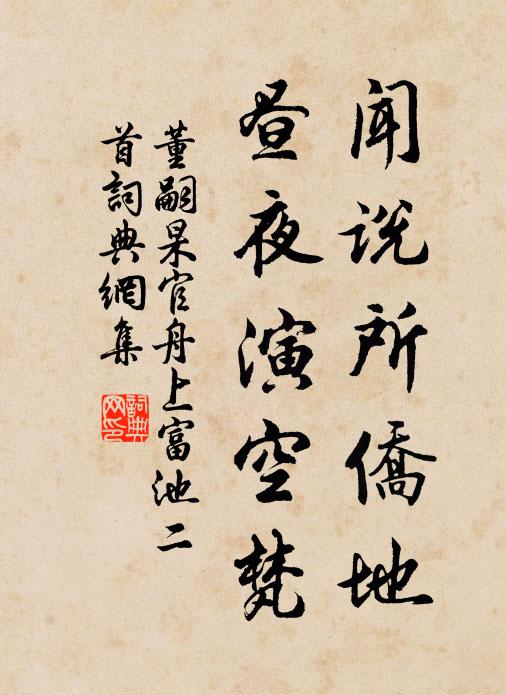 闻说所僑地
昼夜演空梵
董嗣杲官舟上富池二
首詞典網集
詞典网印